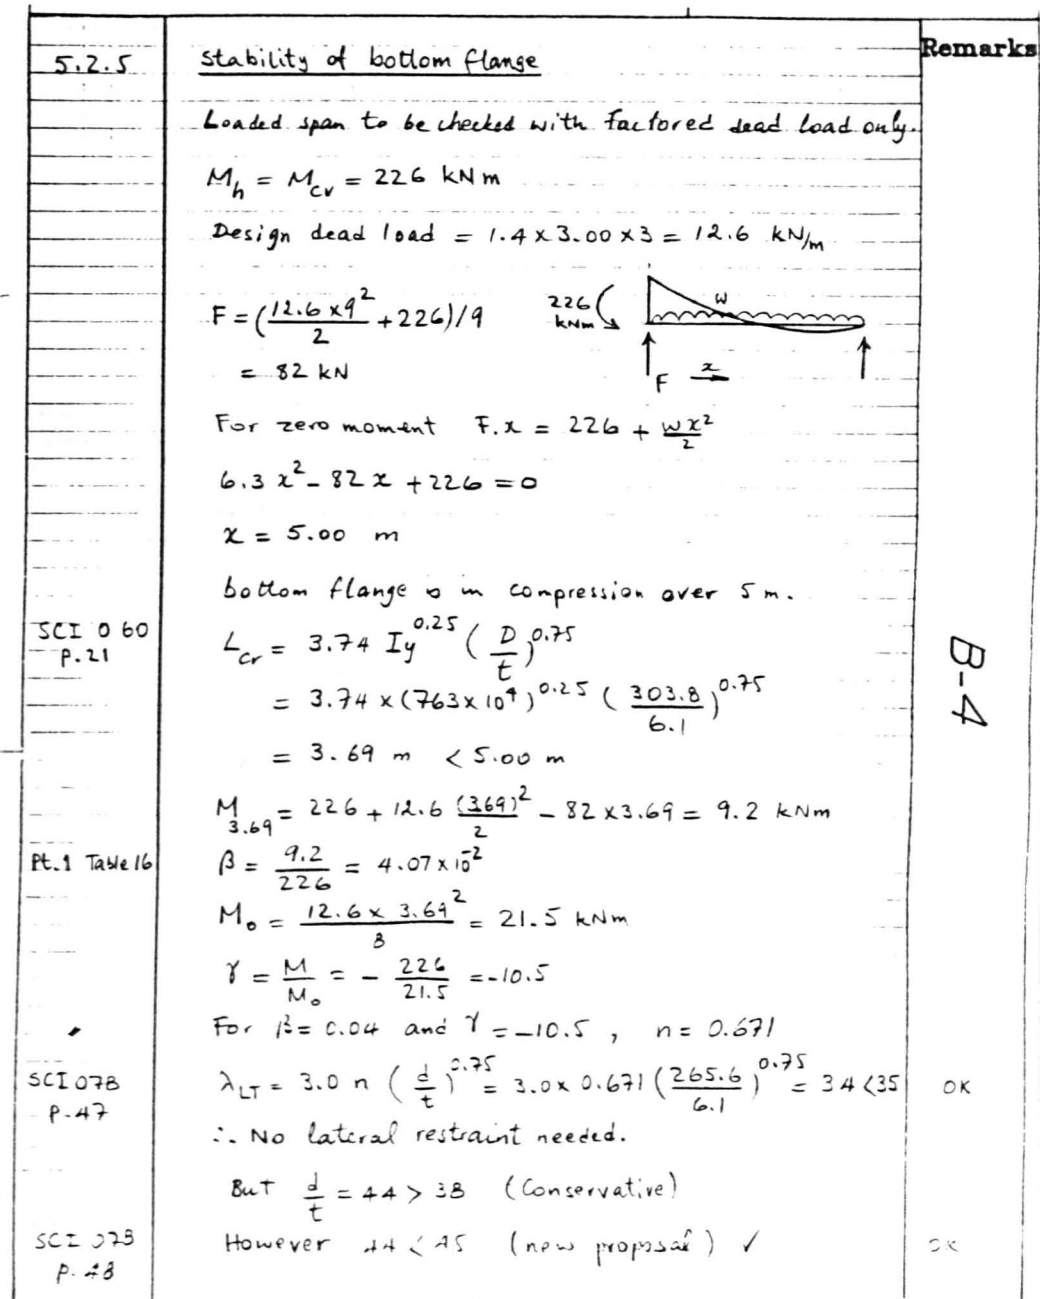 Remarks
5.2.5 Stability of bottom flange
Loaded span to be checked with factored dead load only.
M_h = M_cv = 226 kNm
Design dead load = 1.4 × 3.00 × 3 = 12.6 kN/m
F = (12.6 × 9²/2 + 226)/9
226 kNm
w
= 82 kN
F x
For zero moment F.x = 226 + wx²/2
6.3 x² - 82 x + 226 = 0
x = 5.00 m
bottom flange is in compression over 5 m.
SCI 060 P.21
L_cr = 3.74 Iy^0.25 (D/t)^0.75
= 3.74 × (763 × 10⁴)^0.25 (303.8/6.1)^0.75
B-4
= 3.69 m < 5.00 m
M_3.69 = 226 + 12.6 (3.69)²/2 - 82 × 3.69 = 9.2 kNm
Pt.1 Table 16 β = 9.2/226 = 4.07 × 10⁻²
M_o = 12.6 × 3.69²/8 = 21.5 kNm
γ = M/M_o = - 226/21.5 = -10.5
For β = 0.04 and γ = -10.5, n = 0.671
SCI 078 P.47
λ_LT = 3.0 n (d/t)^0.75 = 3.0 × 0.671 (265.6/6.1)^0.75 = 34 < 35 OK
∴ No lateral restraint needed.
But d/t = 44 > 38 (Conservative)
SCI 078 P.48
However 44 < 45 (new proposal) ✓ OK